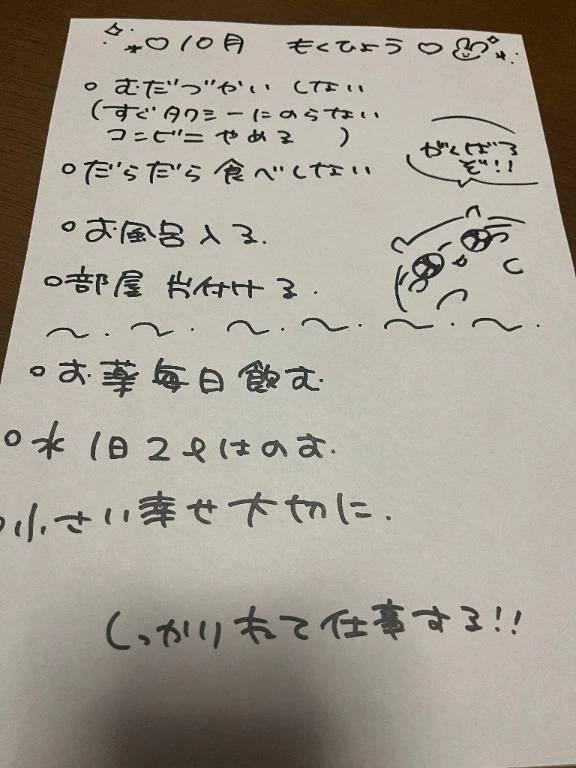 ♡10月 もくひょう♡
○むだづかいしない
(すぐタクシーにのらない
コンビニやめる)
○だらだら食べしない
がんばるぞ!!
○お風呂入る.
○部屋片付ける.
〜.〜.〜.〜.〜.〜.
○お薬毎日飲む
○水1日2ℓはのむ.
○小さい幸せ大切に.
しっかりねて仕事する!!